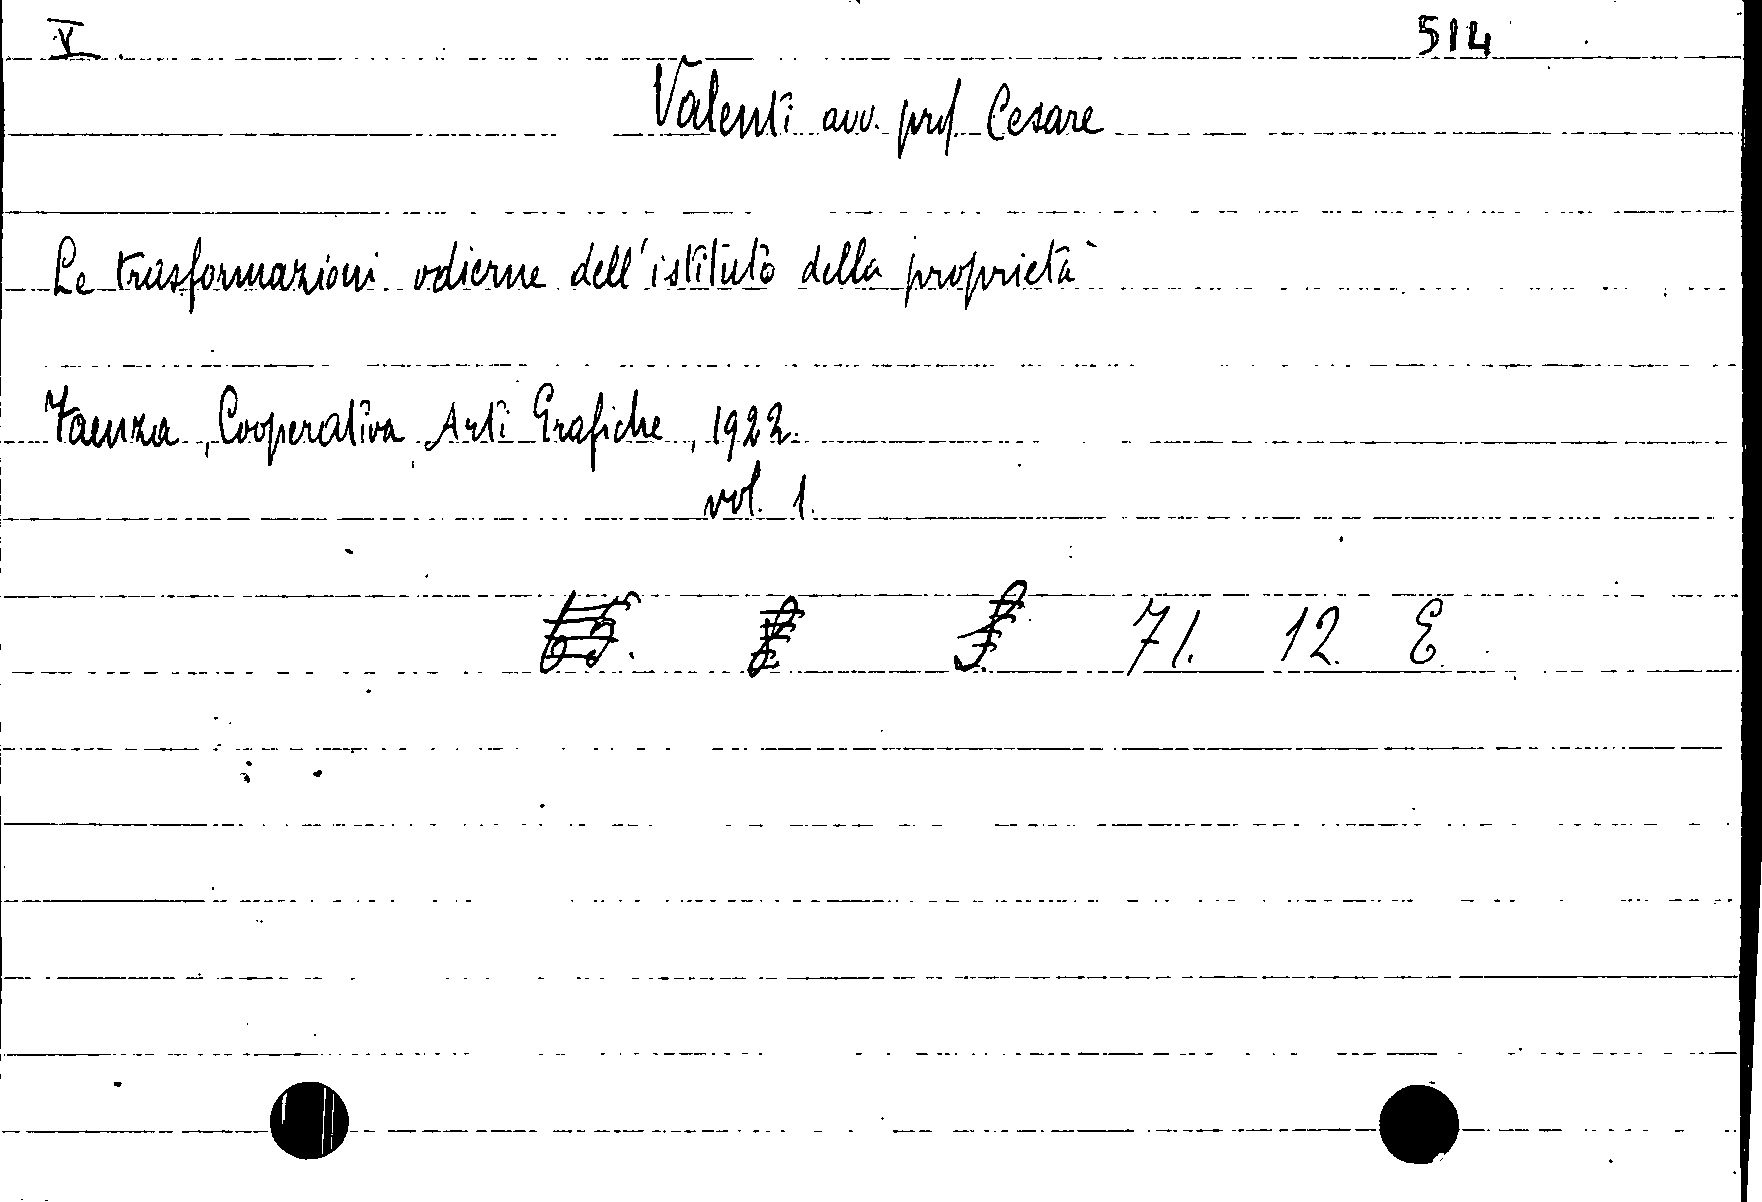 V. 514
Valenti avv. prof. Cesare
Le trasformazioni odierne dell'istituto della proprietà
Faenza, Cooperativa Arti Grafiche, 1922.
vol. 1.
71. 12. E